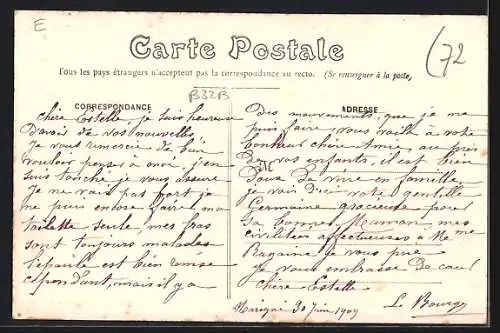 E
Carte Postale
(72
Tous les pays étrangers n'acceptent pas la correspondance au recto. (Se renseigner à la poste)
B32B
CORRESPONDANCE
chère Estelle je suis heureuse
d'avoir de vos nouvelles
Je vous remercie de bien
vouloir penser à moi, j'en
suis touchée je vous assure
Je ne vais pas fort je
ne puis encore faire ma
toilette seule, mes bras
sont toujours malades
l'épaule est bien remise
cependant, mais il y a
ADRESSE
des mouvements que je ne
puis faire vous voilà à votre
bonheur chère Amie, au près
de vos enfants, il est bien
doux de vivre en famille
je vois d'ici votre gentille
Germaine gracieuse pour
sa bonne Maman mes
civilités affectueuses à Me
Ragaine je vous prie
Je vous embrasse de cœur
chère Estelle
Marigné 30 Juin 1909
Le Bourg